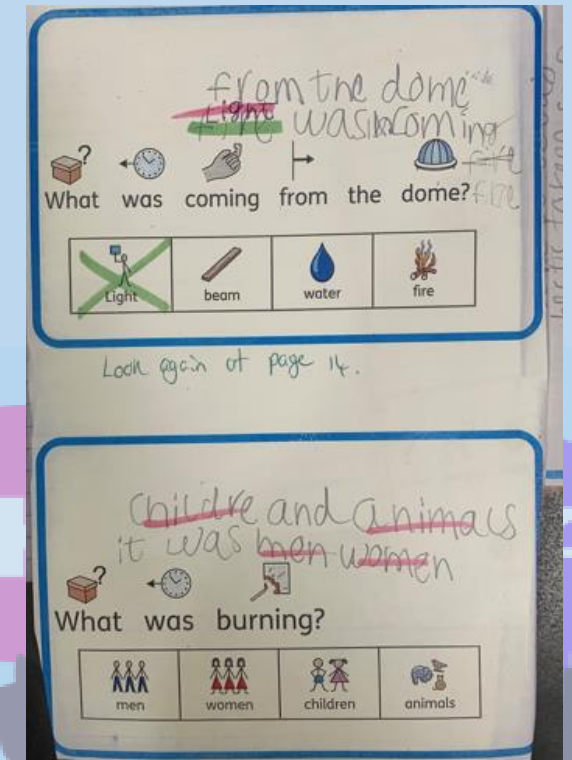 from the dome
Light was coming
fire
What was coming from the dome? fire
Light beam water fire
Look again at page 14.
childre and animals
it was men women
What was burning?
men women children animals